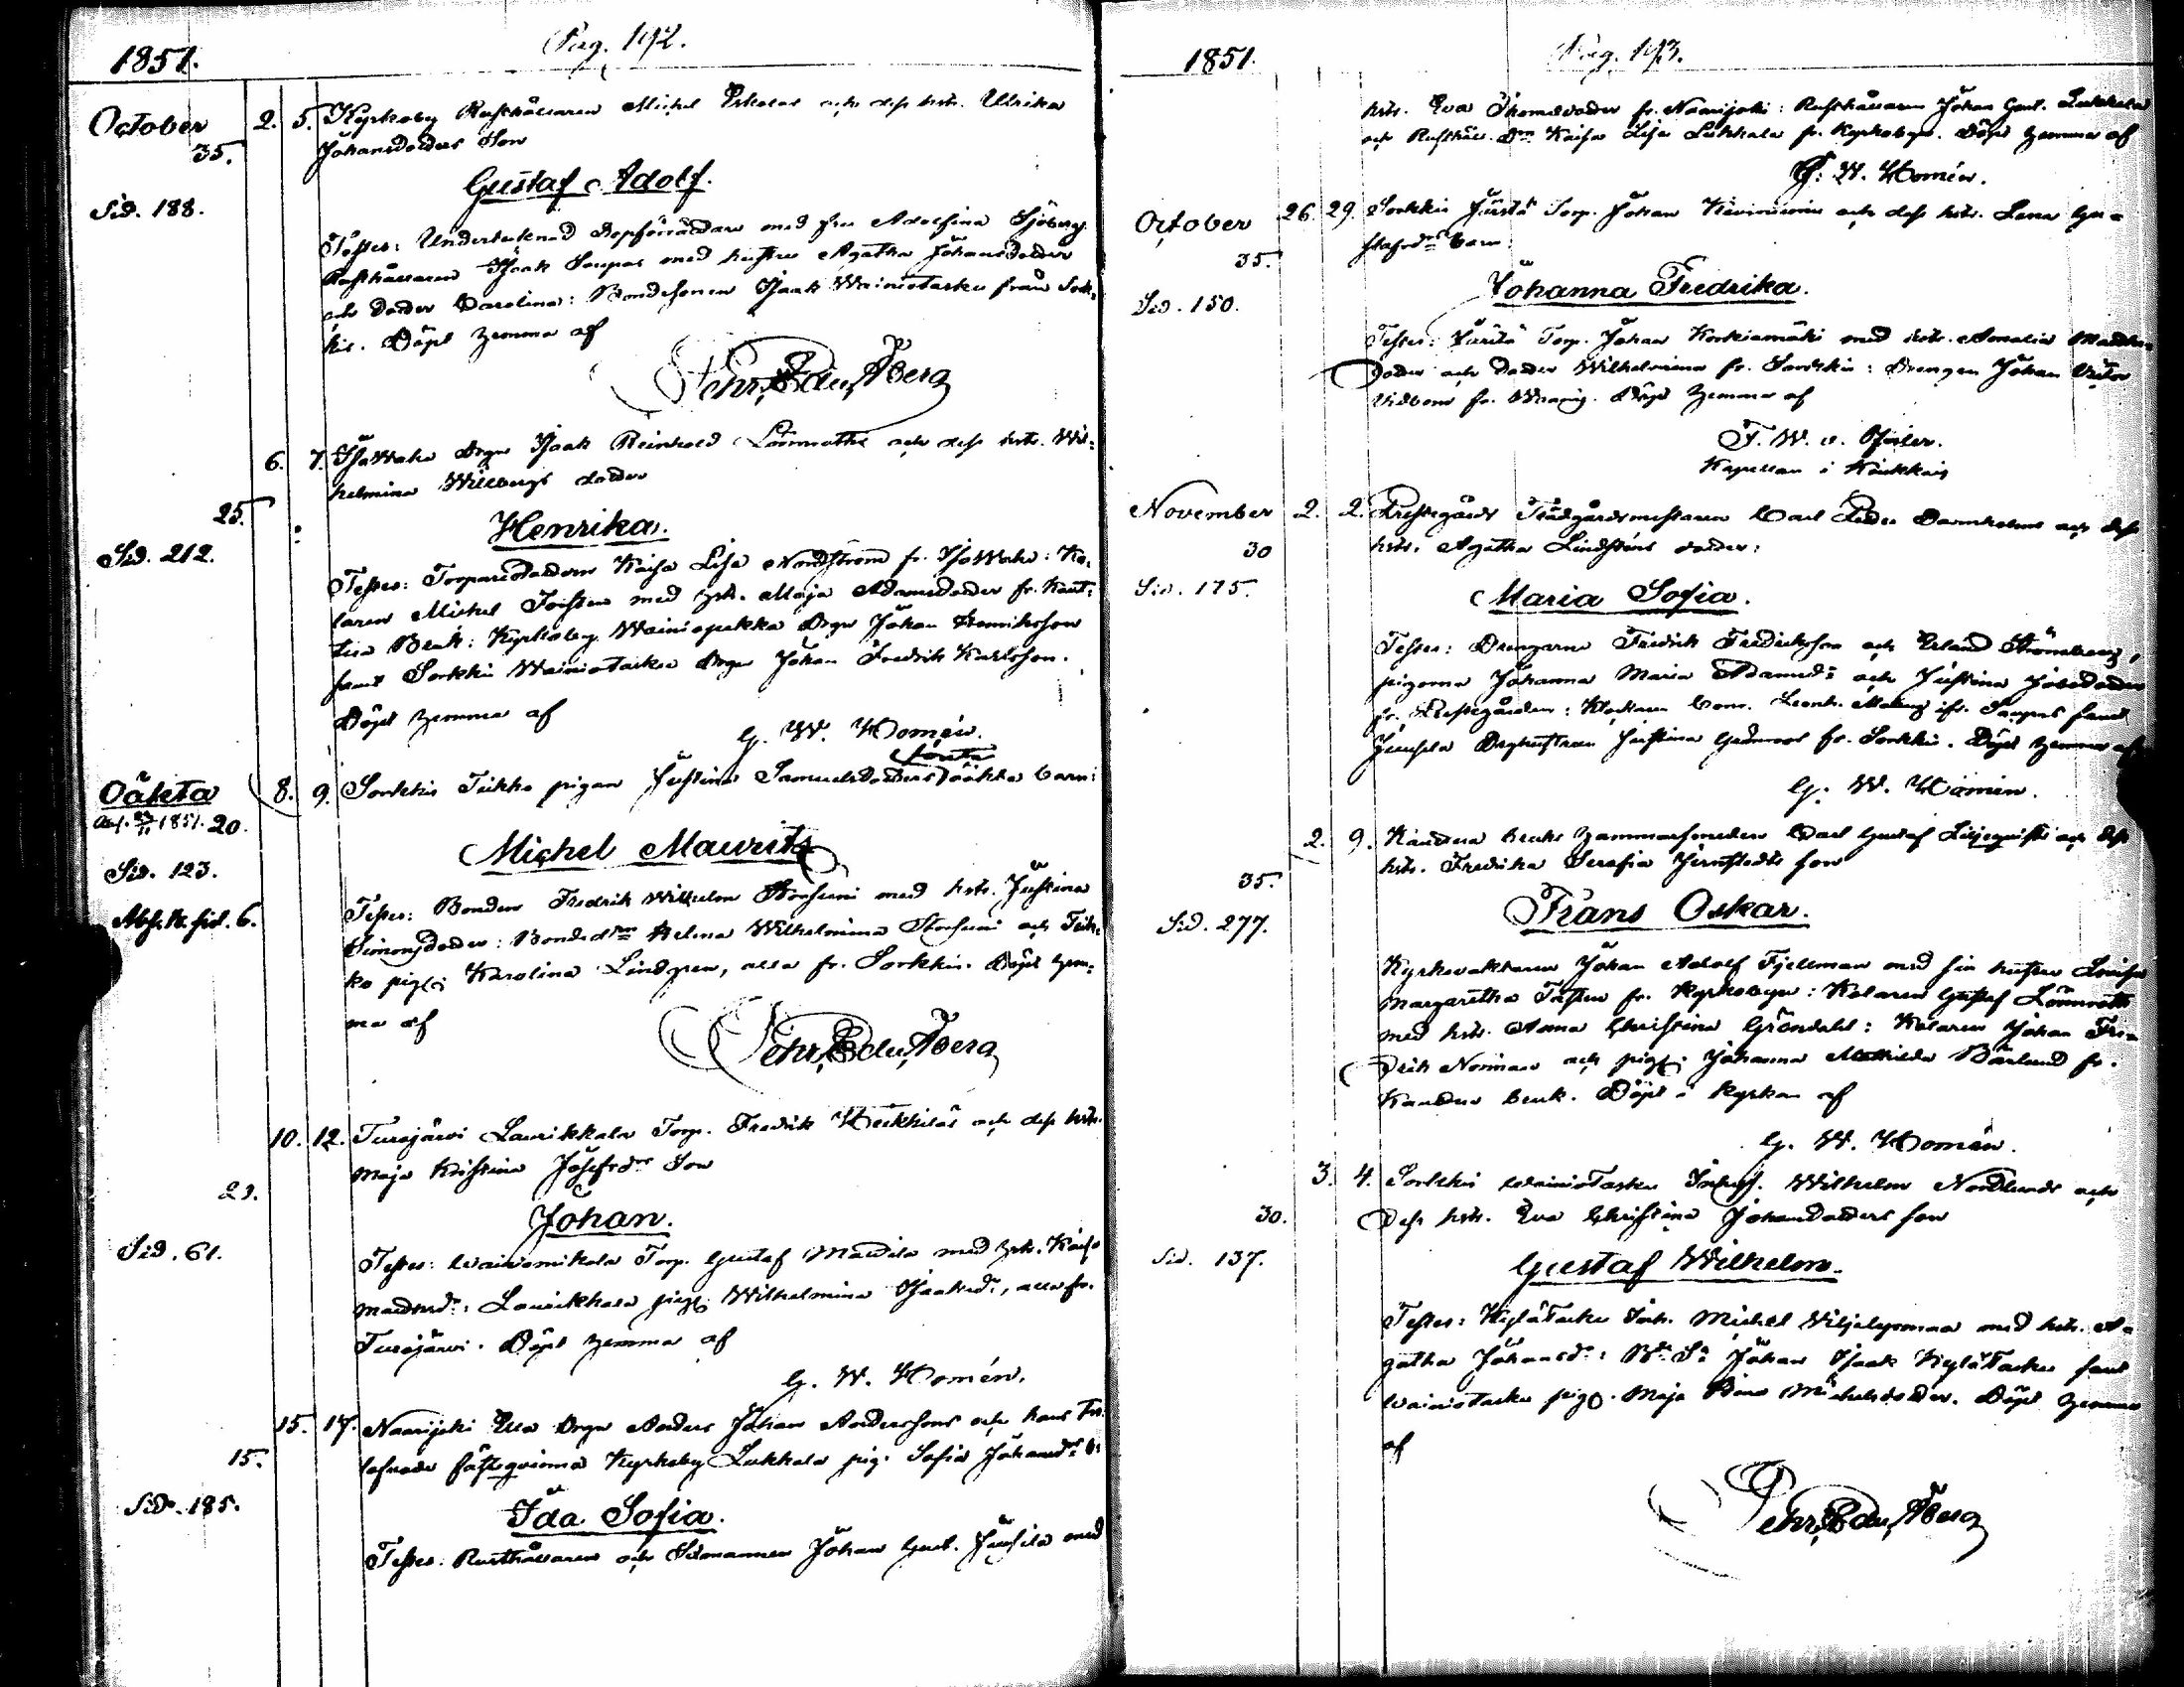 1851. Pag. 192.
October 2. 5. Kyrkoby Rusthållaren Michel Eskolas och dess hstr. Ulrika
35. Johansdotters Son
Gustaf Adolf.
Sid. 188.
Testes: Undertecknad med fru Adolfina Sjöberg
Rusthållaren Isaak Saupas med hustru Agatha Johansdotter
och dotter Carolina: Bondesonen Isaak Wainiotasku från Sork-
kis. Döpt hemma af
Pehr Edu. Åberg
6. 7. Drgn Isaak Reinhold Lönnroths och dess hstr. Wil-
helmina Willbergs dotter
25.
Henrika.
Sid. 212.
Testes: Torparedottern Kaisa Lisa Nordström fr. : Ko-
laren Michel med hstr. Maja Adamsdotter fr. Kaut-
tua Bruk: Kyrkoby Wainiopekka Drgn Johan Henriksson
samt Sorkkis Wainiotasku Drgn Johan Fredrik Karlsson.
Döpt hemma af
G. W. Homén.
Oäkta 8. 9. Sorkkis Tuikko pigan Justina Samuelsdotters oäkta barn:
1851. 20.
Michel Maurits
Sid. 123.
Testes: Bonden Fredrik Wilhelm Storsuni med hstr. Justina
sid. 6.
Simonsdotter: Bondedtrn Helena Wilhelmina Storsuni och Tuik-
ko pig. Karolina Lindgren, alla fr. Sorkkis. Döpt hem-
ma af
Pehr Edu. Åberg
10. 12. Turajärvi Laurikkala Torp. Fredrik Heikkiläs och dess hstr.
Maja Kristina Josefsdrs Son
29.
Johan.
Sid. 61.
Testes: Torp. Gustaf Mattila med hstr. Kaisa
Mattsdr: Laurikkala pig. Wilhelmina Isaaksdr, alla fr.
Turajärvi. Döpt hemma af
G. W. Homén.
15. 17. Naarijoki Drgn Anders Johan Anderssons och hans
fästeqvinna Kyrkoby Lukkala pig. Sofia Johansdrs
15.
Ida Sofia.
Sid. 185.
Testes. Rusthållaren och Johan Gust. Jussila med
1851. Pag. 193.
hstr. Eva Thomasdotter fr. Naarijoki: Rusthållaren Johan Gust. Lukkala
och Rusthåll. Drn Kaisa Lisa Lukkala fr. Kyrkobyn. Döpt hemma af
G. W. Homén.
October 26. 29. Sorkkis Torp. Johan och dess hstr. Lena Gu-
stafsdrs barn:
35.
Johanna Fredrika.
Sid. 150.
Testes: Torp. Johan Korkiamäki med hstr. Amalia
dotter och dotter Wilhelmina fr. Sorkkis: Drengen Johan Victor
fr. Döpt hemma af
F. W. v.
Kapellan i Kiukkais
November 2. 2. Prestegårds Trädgårdsmästaren Carl och dess
30 hstr. Agatha Lindsténs dotter:
Sid. 175.
Maria Sofia.
Testes: Drengarne Fredrik Fredriksson och Erland Strömberg,
pigorna Johanna Maria Adamsdr och Justina
fr. Prestegården: fr. Saupas samt
Jussila Drghustrun Justina Grönroos fr. Sorkkis. Döpt hemma af
G. W. Homén.
2. 9. Kauttua Bruks Hammarsmeden Carl Gustaf Liljeqvists och dess
hstr. Fredrika Serafia Jernstedts son
35.
Frans Oskar.
Sid. 277.
Kyrkovaktaren Johan Adolf Fjellman med sin hustru Lovisa
Margaretha fr. Kyrkobyn: Kolaren Gustaf Lönnroth
med hstr. Anna Christina Gröndahl: Kolaren Johan Fre-
drik Norrman och pig. Johanna Mathilda Bärlund fr.
Kauttua bruk. Döpt i Kyrkan af
G. W. Homén.
3. 4. Sorkkis Wainiotasku Inhys. Wilhelm Nordlunds och
30. Dess hstr. Eva Christina Johansdotters son
Sid. 137.
Gustaf Wilhelm.
Testes: Inh. Michel med hstr. A-
gatha Johansdr: Johan Isaak samt
Wainiotasku pig. Maja Michelsdotter. Döpt hemma
af
Pehr Edu. Åberg